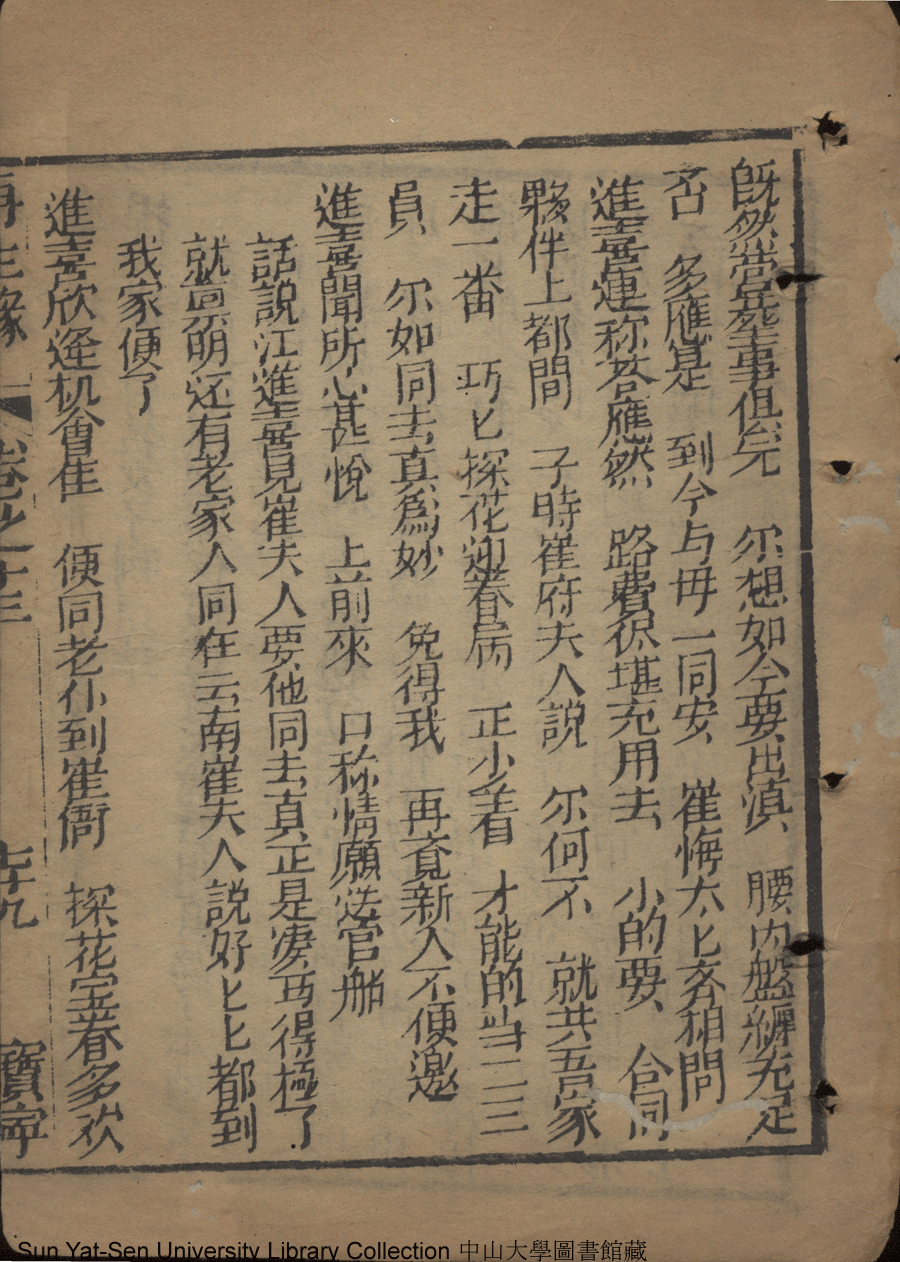 既然营𦵏事俱完　尔想如今要出滇　腰内盤纏充足
否　多應是　到今与毋一同安　崔悔太匕旁相問
進喜連称荅應然　路費保堪充用去　小的要　合同
夥伴上都間　子時崔府夫人説　尔何不　就共吾家
走一番　巧匕探花迎眷屬　正少着　才能的当二三
員　尔如同去真為妙　免得我　再覔新人不便邀
進喜聞所心甚悅　上前來　口称情願送官船
話說江進喜見崔夫人要他同去真正是凑巧得極了
就禀明还有老家人同在云南崔夫人說好匕匕都到
我家便了
進喜欣逢机會佳　便同老仆到崔衙　探花宝眷多欢
再生緣　卷之十三　七十九　寶寧
Sun Yat-Sen University Library Collection 中山大學圖書館藏